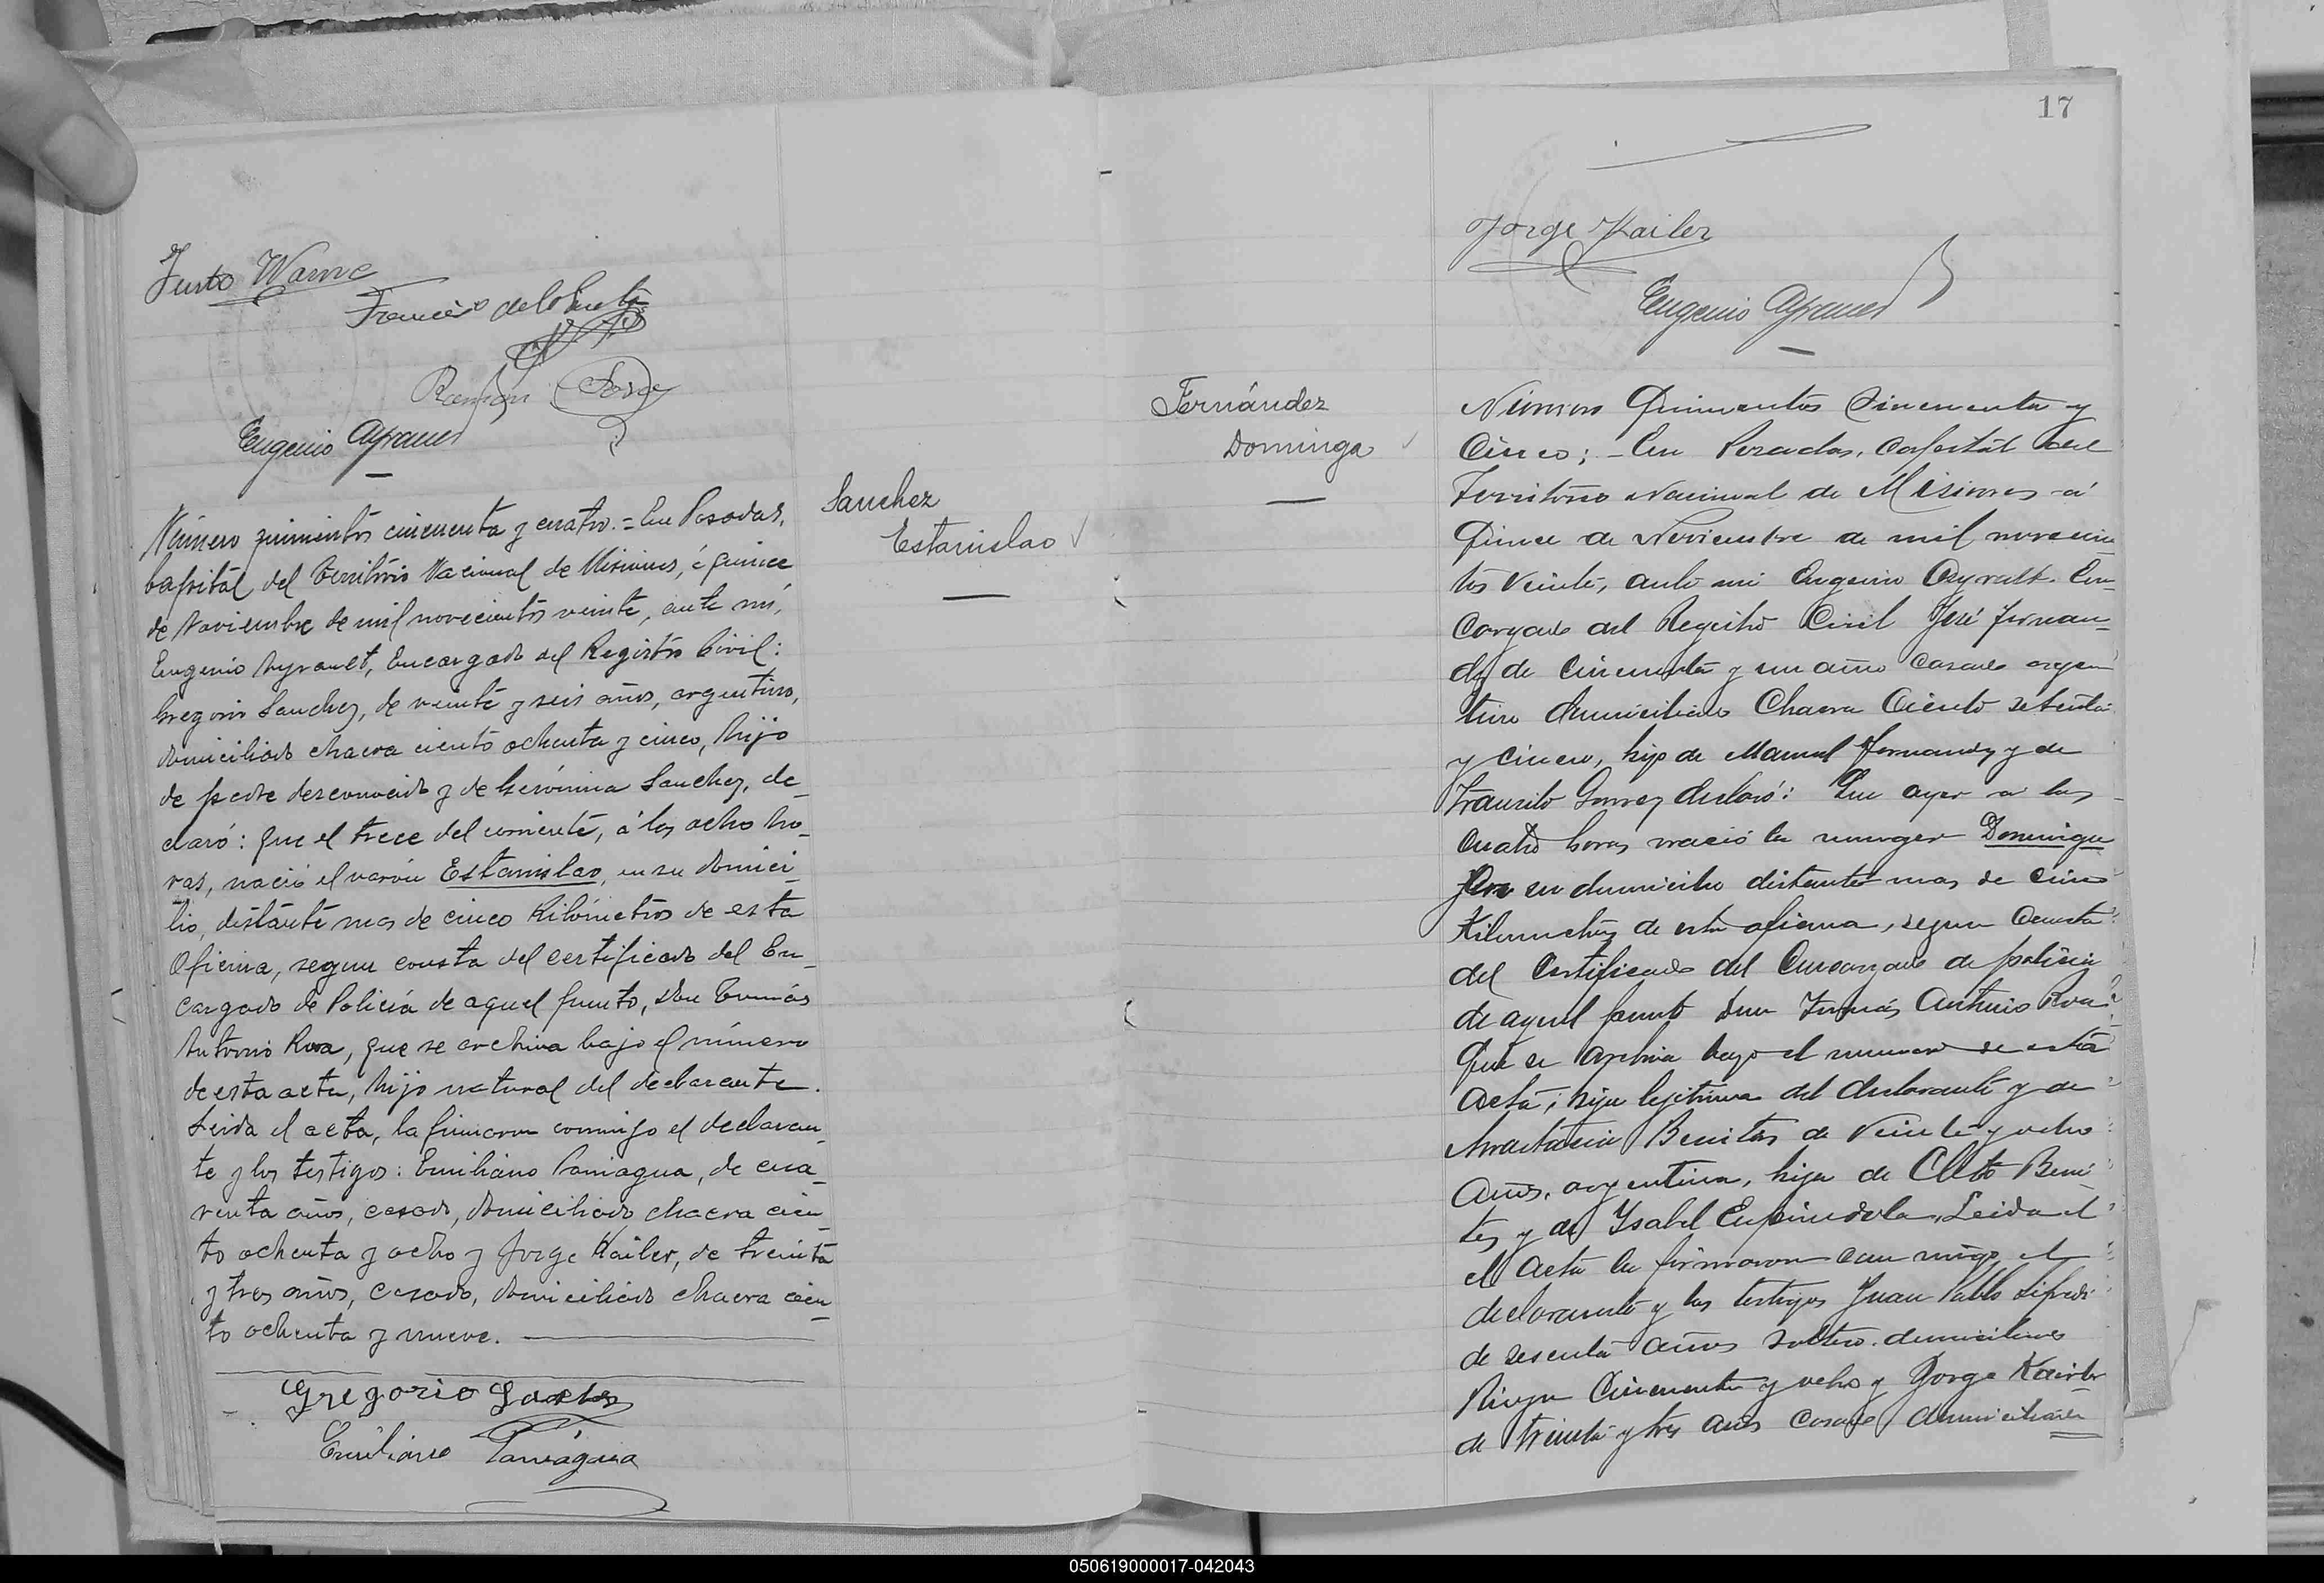 Justo Warne
Francisco de la Puente
Ramón Sosa
Eugenio Ayrault
Sanchez
Estanislao
Número quinientos cincuenta y cuatro. = En Posadas,
Capital del Territorio Nacional de Misiones, á quince
de Noviembre de mil novecientos veinte, ante mí,
Eugenio Ayrault, Encargado del Registro Civil:
Gregorio Sanchez, de veinte y seis años, argentino,
domiciliado chacra ciento ochenta y cinco, hijo
de padre desconocido y de Gerónima Sanchez, de_
claró: que el trece del corriente, á las ocho ho_
ras, nació el varón Estanislao, en su domici_
lio, distante mas de cinco Kilómetros de esta
Oficina, segun consta del certificado del En_
cargado de Policía de aquel punto, Don Tomás
Antonio Roa, que se archiva bajo el número
de esta acta, hijo natural del declarante.
Leida el acta, la firmaron conmigo el declaran_
te y los testigos: Emiliano Paniagua, de cua_
renta años, casado, domiciliado chacra cien_
to ochenta y ocho y Jorge Kailer, de treinta
y tres años, casado, domiciliado chacra cien_
to ochenta y nueve.
Gregorio Sanches
Emiliano Paniagua
17
Jorge Kailer
Eugenio Ayrault
Fernández
Dominga
Número Quinientos Cincuenta y
Cinco; - En Posadas, Capital del
Territorio Nacional de Misiones á
Quince de Noviembre de mil novecien_
tos veinte, ante mi Eugenio Ayrault. En_
cargado del Registro Civil José Fernan_
dz de cincuenta y un año casado argen
tino domiciliado Chacra Ciento setenta
y cinco, hijo de Manuel Fernandez y de
Transito Gomez declaró: Que ayer a las
cuatro horas nació la mujer Dominga
en su domicilio distante mas de cinco
Kilometros de esta oficina, segun Consta
del Certificado del Encargado de policia
de aquel punto Don Tomás Antonio Roa
que se archiva bajo el numero de esta
acta; hija legitima del declarante y de
Anastacia Benites de Veinte y ocho
años, argentina, hija de Cleto Beni
tes y de Ysabel Espindola. Leida el
el acta la firmaron con migo el
declarante y los testigos Juan Pablo
de sesenta años soltero. domiciliado
Rioja Cincuenta y ocho y Jorge Kairler
de treinta y tres años Casado domiciliado
050619000017-042043